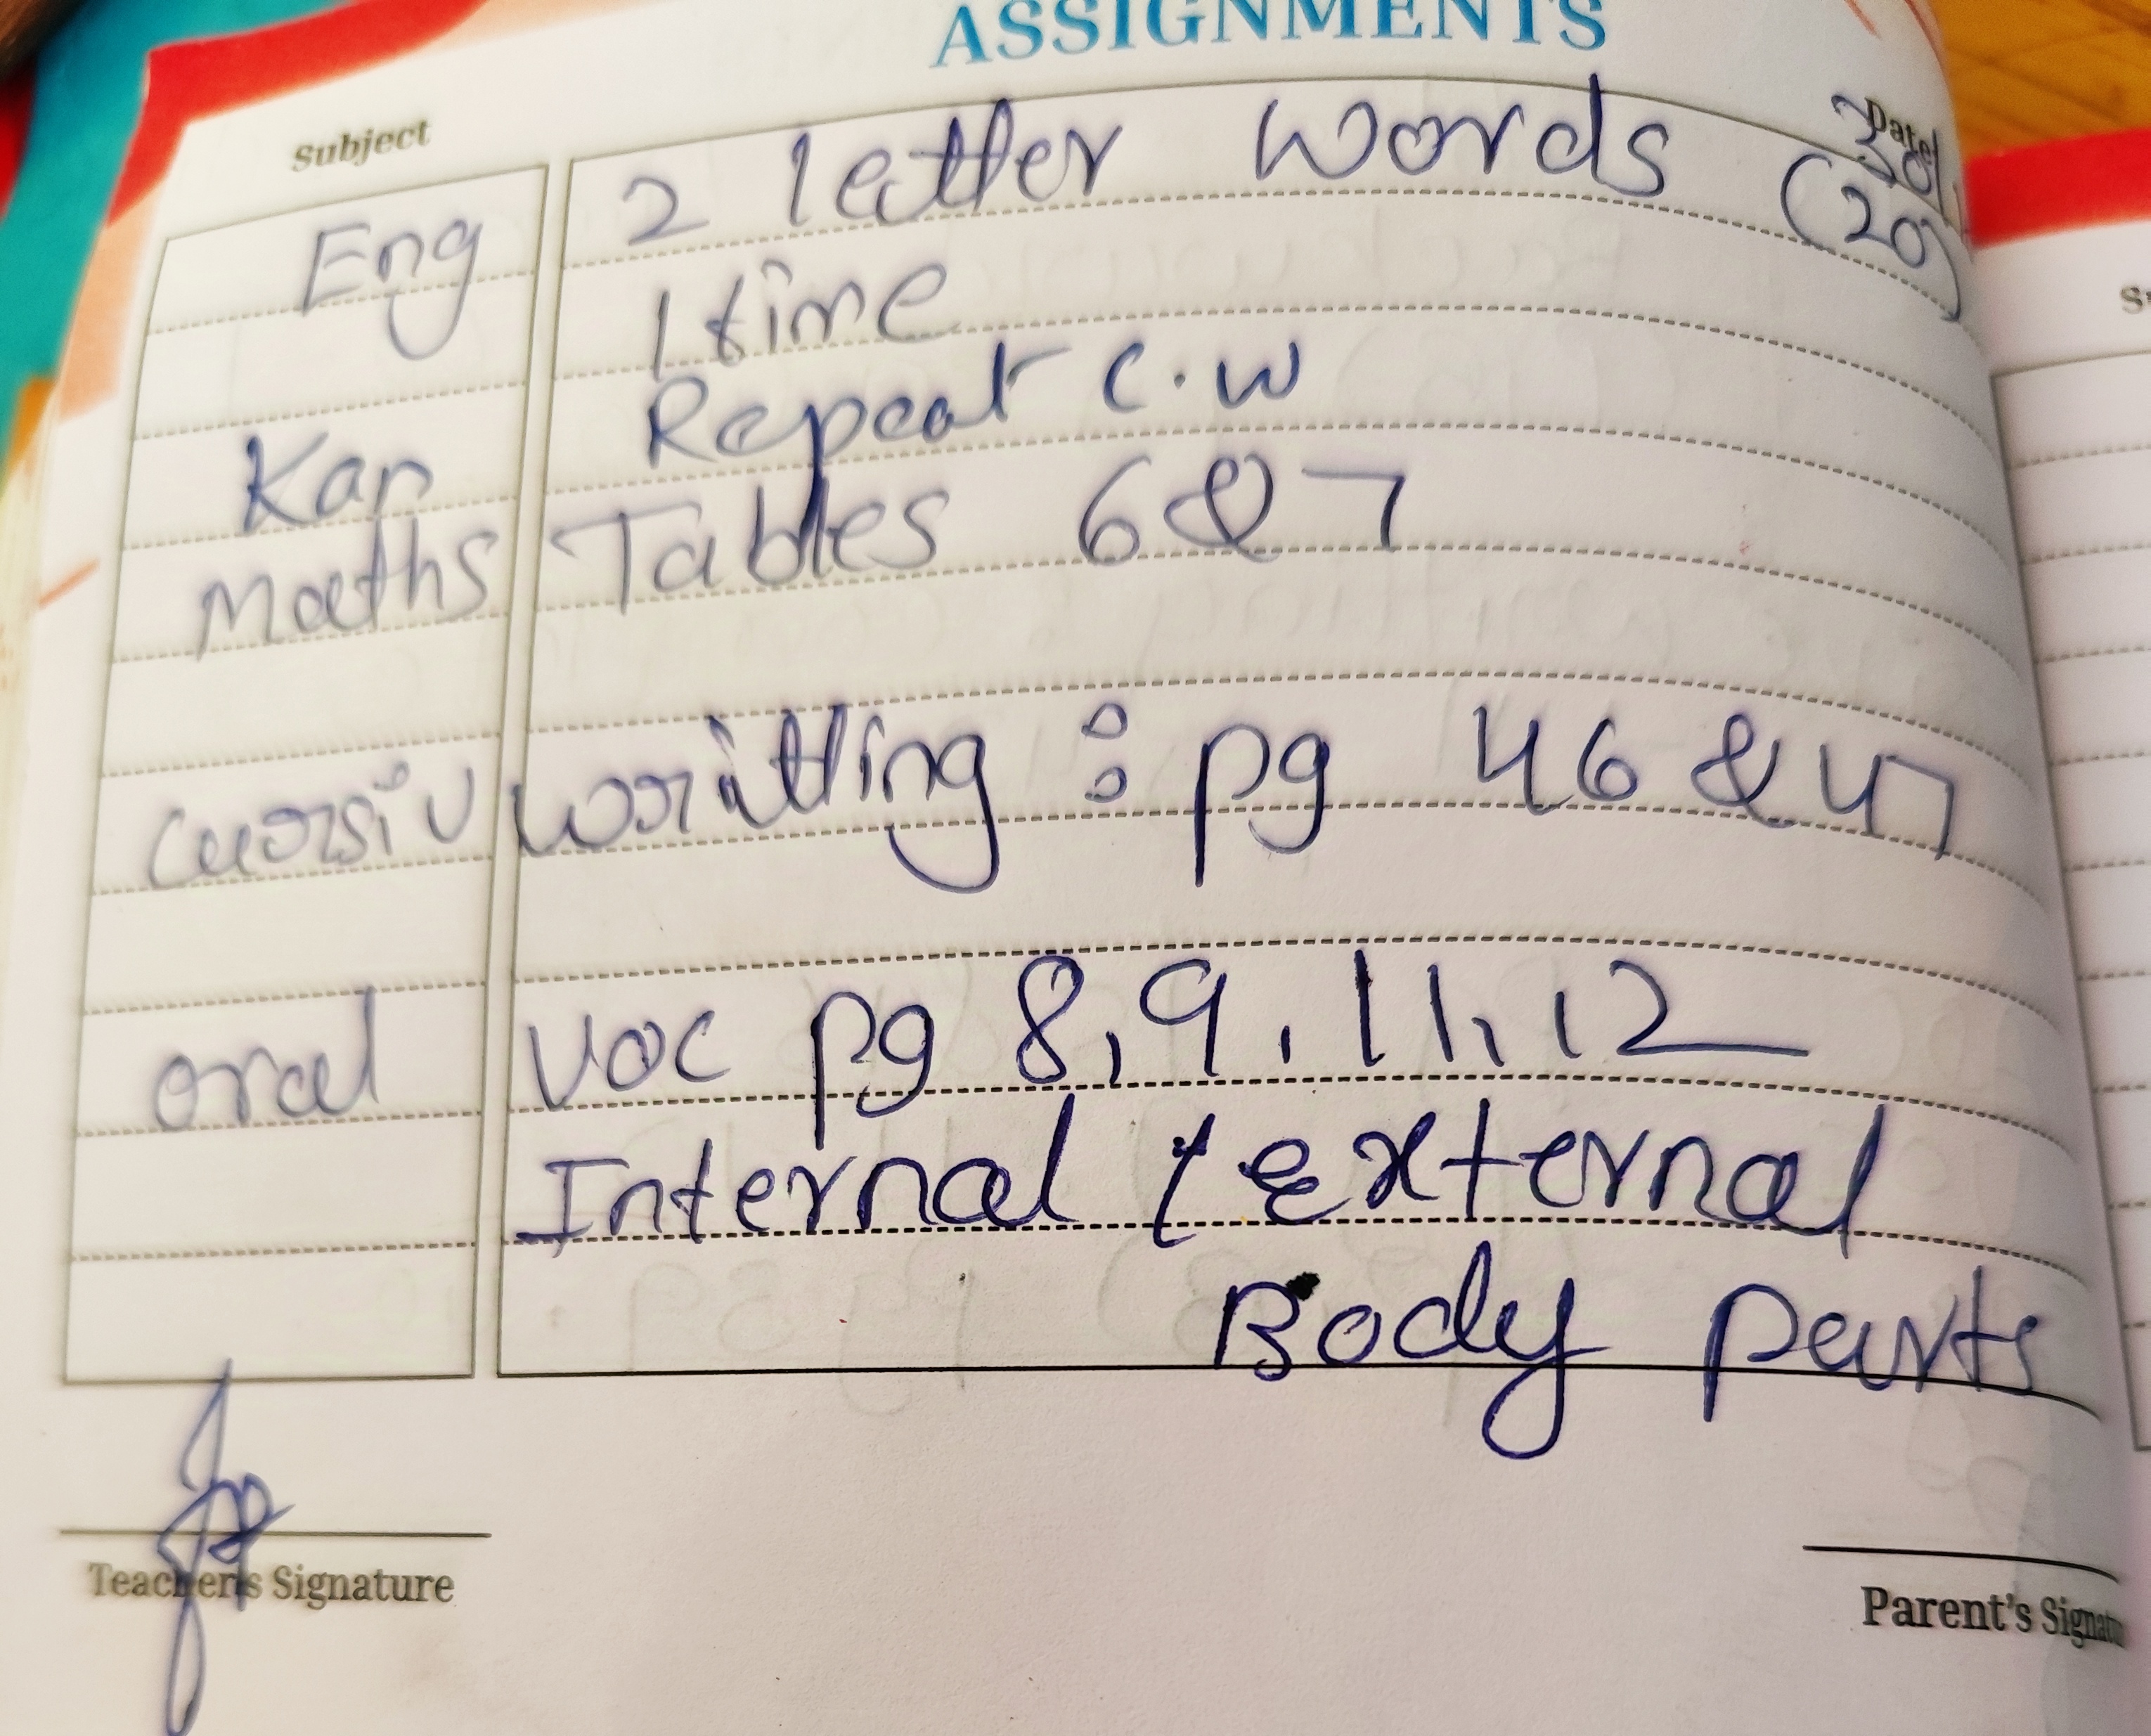 ASSIGNMENTS
Subject Date
Eng 2 letter words (20)
1 time
Kan Repeat C.W
Maths Tables 6 & 7
Cursiv writting : pg 46 & 47
oral voc pg 8, 9, 11, 12
Internal & external
Body parts
Teacher's Signature Parent's